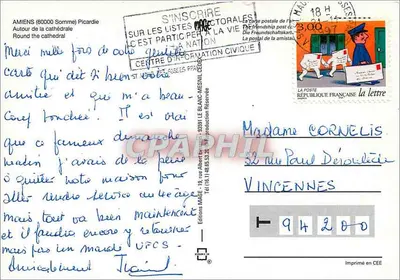 AMIENS (80000 Somme) Picardie
Autour de la cathédrale
Round the cathedral
Merci mille fois de cette petite
carte qui dit si bien votre
amitié et qui m'a beau-
coup touchée. Il est vrai
que ce fameux dimanche
matin j'avais de la peine
à quitter notre maison pour
aller rendre service
mais tout va bien maintenant
et il faudra encore y retourner
mais pas un manche UFCS.
Amicalement
S'INSCRIRE
SUR LES LISTES ELECTORALES
C'EST PARTICIPER A LA VIE
DE LA NATION
CENTRE D'INFORMATION CIVIQUE
La carte postale de l'am
The friendship post c
Die Freundschaftskart
La postal de la amistad
18 H
97
3,00
LA POSTE
RÉPUBLIQUE FRANÇAISE
la lettre
Editions MAGE
93591 LE BLANC-MESNIL CEDEX
Reproduction Interdite
CPAPHIL
Madame CORNELIS
32 rue Paul Déroulède
VINCENNES
94200
Imprimé en CEE